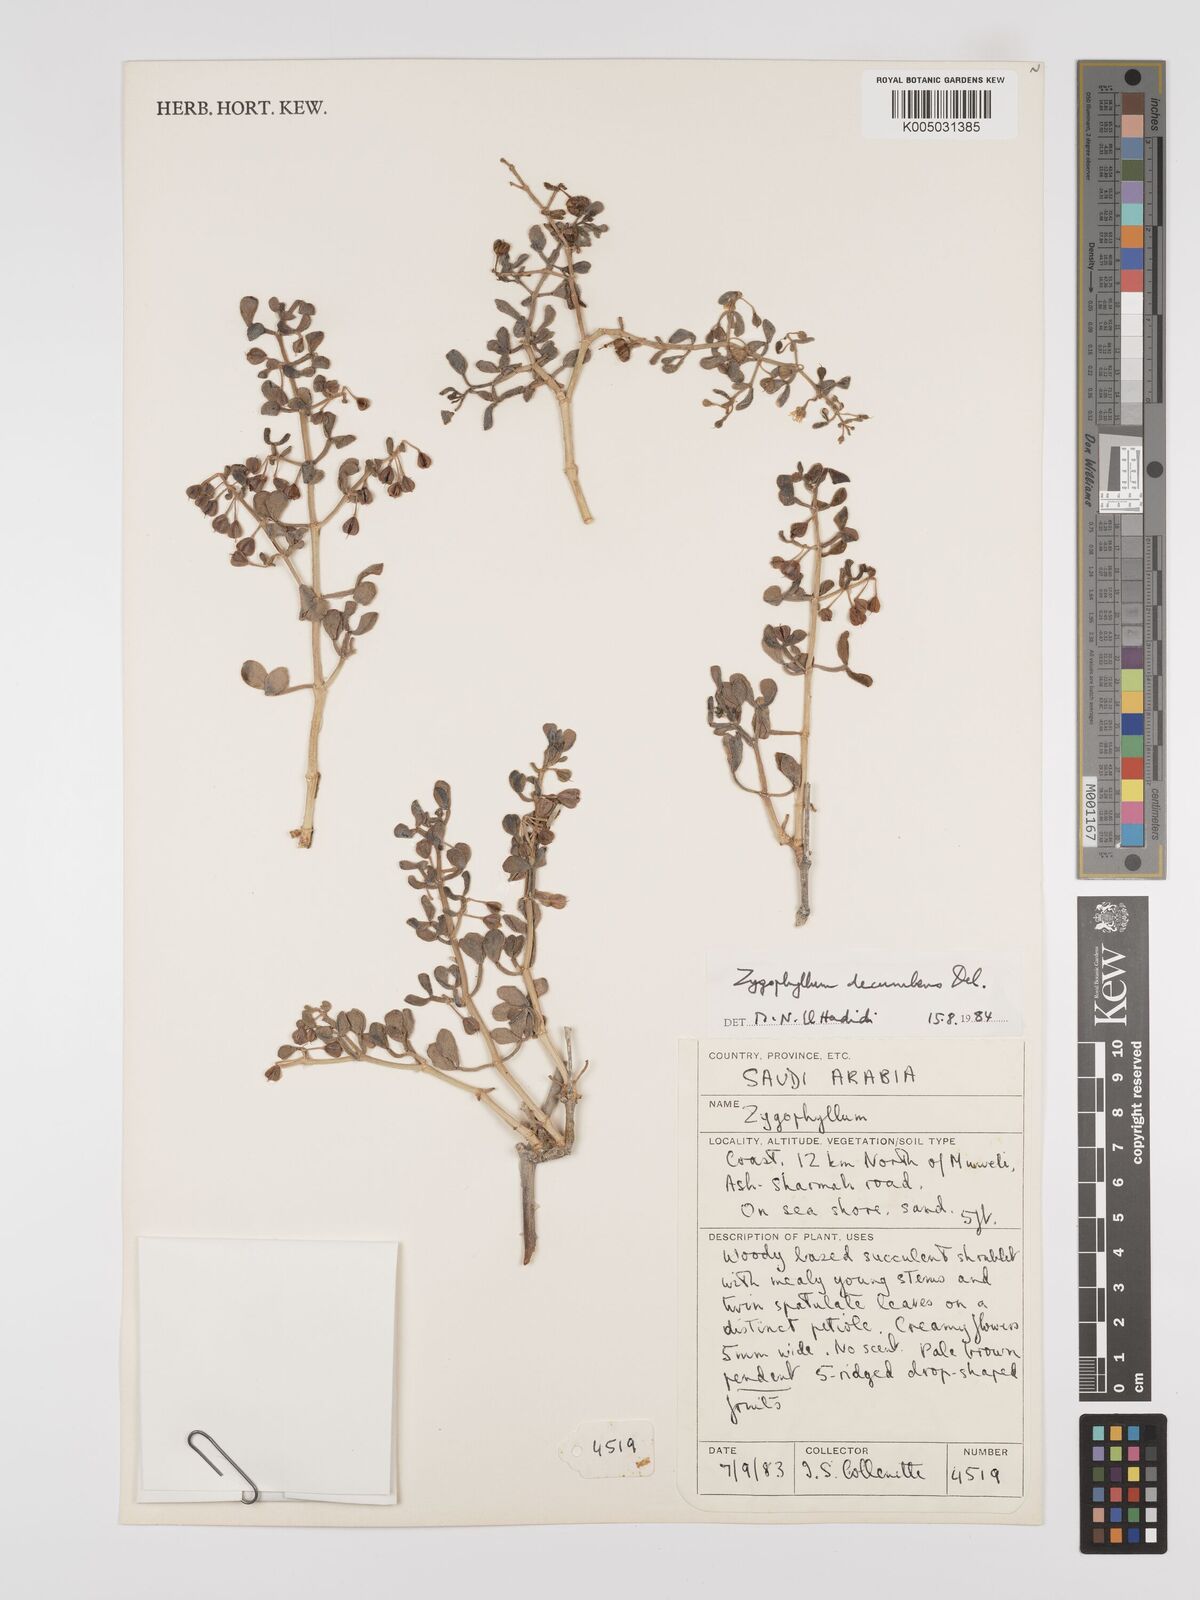 HERB. HORT. KEW.
ROYAL BOTANIC GARDENS KEW
K005031385
Zygophyllum decumbens Del.
DET. M. N. El Hadidi 15.8.1984
COUNTRY, PROVINCE, ETC.
SAUDI ARABIA
NAME Zygophyllum
LOCALITY, ALTITUDE, VEGETATION/SOIL TYPE
Coast. 12 km North of
Ash-Sharmah road.
On sea shore. sand. 5ft.
DESCRIPTION OF PLANT, USES
Woody based succulent shrublet
with mealy young stems and
twin spatulate leaves on a
distinct petiole. Creamy flowers
5mm wide. No scent. Pale brown
pendent 5-ridged drop-shaped
fruits
DATE COLLECTOR NUMBER
7/9/83 I.S. Collenette 4519
4519
inches
centimetres
Density
Don Williams
M001167
KEW
Royal Botanic Gardens
copyright reserved
0 1 2 3 4 5 6 7 8 9 10
cm